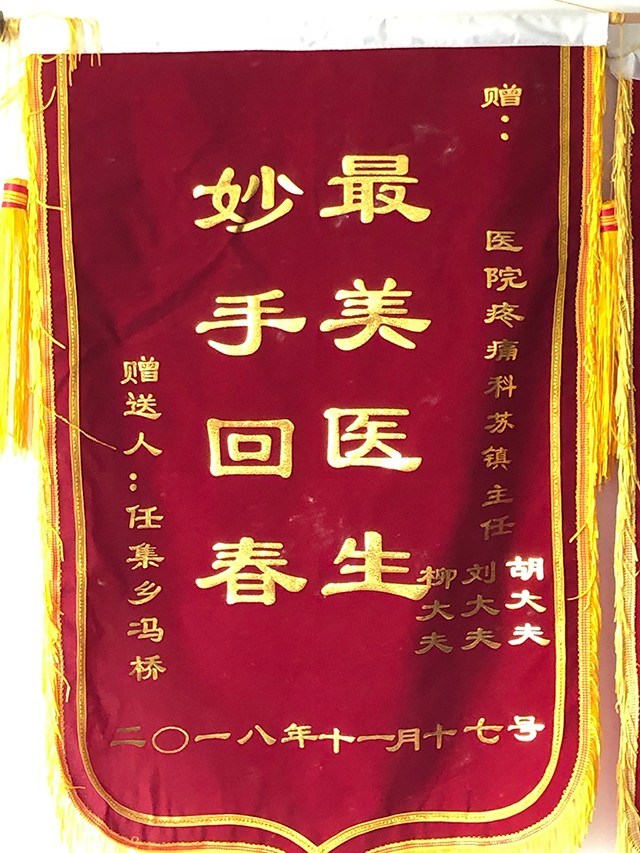 赠：
医院疼痛科苏镇主任
胡大夫
刘大夫
柳大夫
最美医生
妙手回春
赠送人：任集乡冯桥
二〇一八年十一月十七号